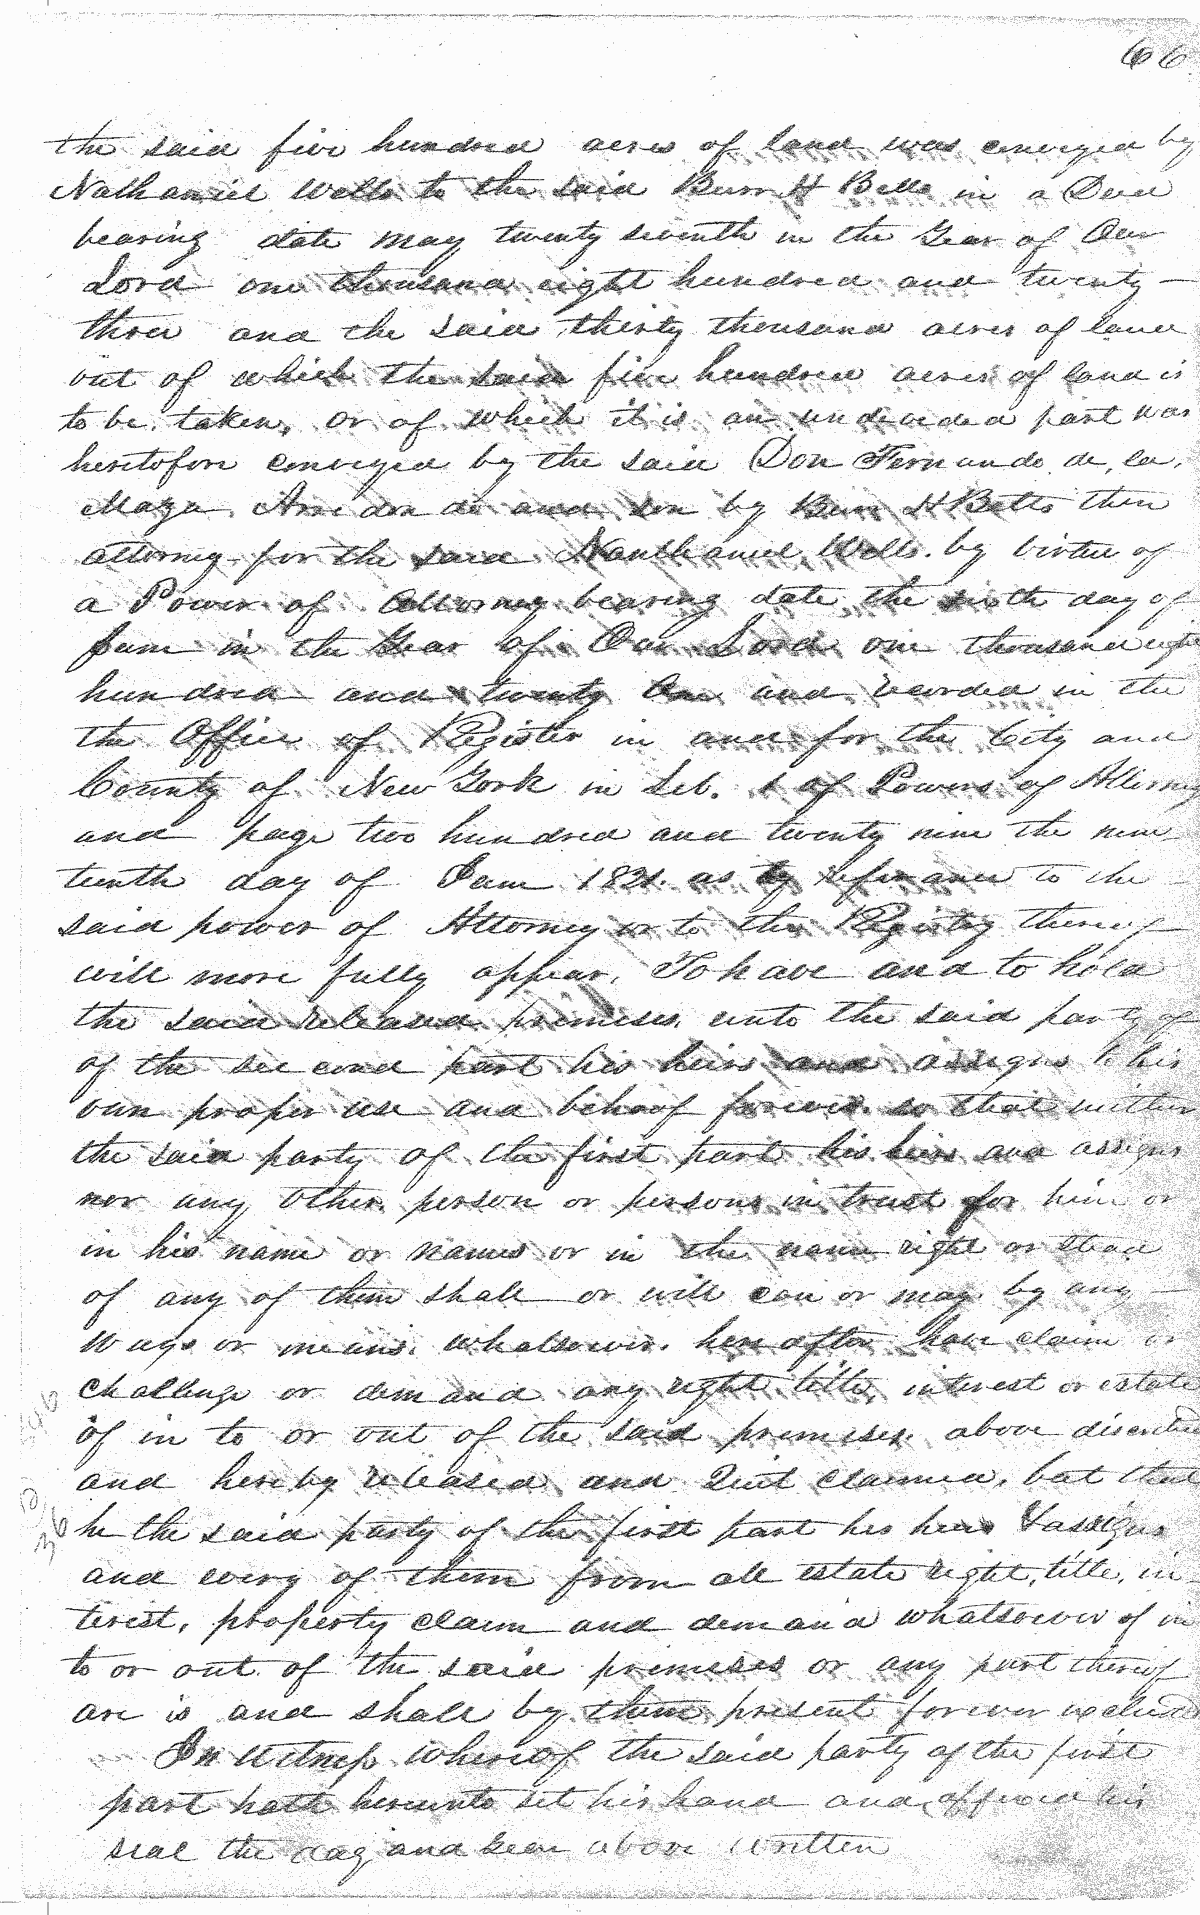 66
the said five hundred acres of land was conveyed by
Nathaniel Wells to the said Burr H Betts in a Deed
bearing date may twenty seventh in the Year of Our
Lord one thousand eight hundred and twenty —
three and the said thirty thousand acres of land
out of which the said five hundred acres of land is
to be taken, or of which it is an undevided part was
heretofore conveyed by the said Don Fernando de, la,
Maza Arredondo and son by Burr H Betts then
attorney for the said Nanthaniel Wells. by virtue of
a Power of Attorney bearing date the sixth day of
June in the Year of Our Lord one thousand eight
hundred and twenty One and recorded in the
the Office of Register in and for the City and
County of New York in Lib. 1 of Powers of Attorney
and page two hundred and twenty nine the nine
teenth day of June 1821. as by referance to the
said power of Attorney or to the Registry thereof
will more fully appear, To have and to hold
the said released premises unto the said party of
of the second part his heirs and assigns to his
own proper use and behoof forever. so that neither
the said party of the first part his heirs and assigns
nor any other person or persons in trust for him or
in his name or names or in the name right or stead
of any of them shall or will can or may by any —
ways or means whatsoever. hereafter have claim or
challenge or demand any right title interest or estate
of in to or out of the said premises. above discribed
and hereby released and Quit claimed, but that
he the said party of the first part his heirs & assigns
and every of them from all estate right, title, in
terest, property claim and demand whatsoever of in
to or out of the said premises or any part thereof
are is and shall by these present forever excluded
In Witness whereof the said party of the first
part hath hereunto set his hand and affixed his
seal the day and year above written
36